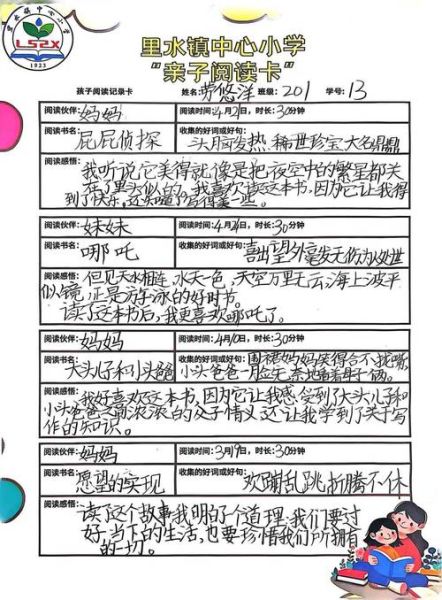 里水镇中心小学
LSZX
1923
里水镇中心小学
“亲子阅读卡”
孩子阅读记录卡 姓名:劳悠洋 班级:201 学号:13
阅读伙伴:妈妈 阅读时间:4月21日,时长:30分钟
阅读书名: 屁屁侦探 收集的好词或好句: 头脑发热 稀世珍宝 大名鼎鼎
阅读感悟:
我听说它美得就像是把夜空中的繁星都关
在了里头似的。我喜欢读这本书,因为它让我得
到了快乐,还知道了
阅读伙伴:妹妹 阅读时间:4月24日,时长:30分钟
阅读书名: 哪吒 收集的好词或好句: 喜出望外 毫发无伤 为人处世
阅读感悟: 但见天水相连,水天一色,天空万里无云,海上波平
似镜,正是万子泳的好时节。
读了这本书后,我更喜欢哪吒了。
阅读伙伴:妈妈 阅读时间:4月10日,时长:30分钟
阅读书名: 大头儿子和小头爸爸 收集的好词或好句: 围裙妈妈笑得合不拢嘴
小头爸爸一脸无奈地带着母子俩。
阅读感悟: 我好喜欢这本书,因为它让我感受到了大头儿子和
小头爸爸之间浓浓的父子情义,还让我学到了关于写
作的知识。
阅读伙伴:妈妈 阅读时间:3月19日,时长:30分钟
阅读书名: 愿望的实现 收集的好词或好句: 欢蹦乱跳 折腾不休
阅读感悟:
读了这个故事我明白了个道理:我们要过
好当下的生活,也要珍惜我们所拥有
的一切。